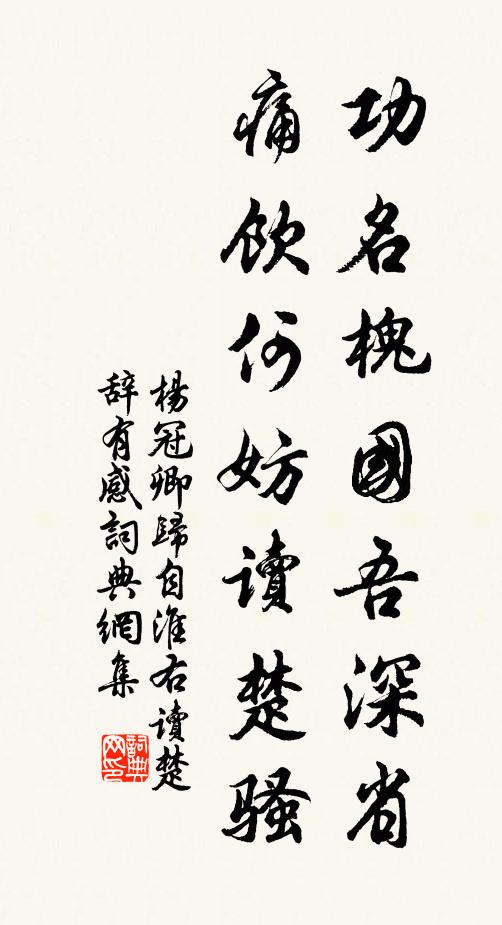 功名槐國吾深省
痛飲何妨讀楚騷
楊冠卿歸自淮右讀楚
辞有感詞典網集
詞典
网印